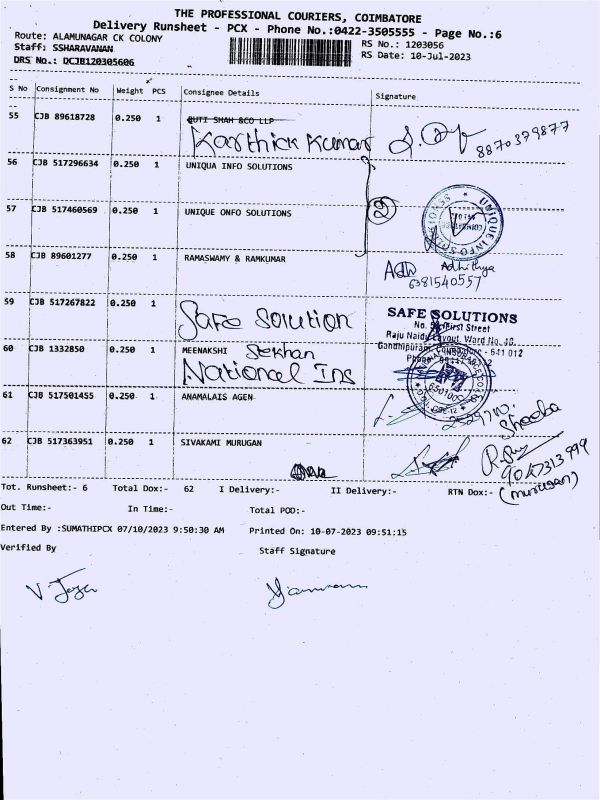 THE PROFESSIONAL COURIERS, COIMBATORE
Delivery Runsheet - PCX - Phone No.:0422-3505555 - Page No.:6
Route: ALAMUNAGAR CK COLONY
RS No.: 1203056
Staff: SSHARAVANAN
RS Date: 10-Jul-2023
DRS No.: DCJB120305606
S No Consignment No Weight PCS Consignee Details Signature
55 CJB 89618728 0.250 1 QUTI SHAH &CO LLP
Karthick Kumar 8870379877
56 CJB 517296634 0.250 1 UNIQUA INFO SOLUTIONS
57 CJB 517460569 0.250 1 UNIQUE ONFO SOLUTIONS
2
UNIQUE INFO
58 CJB 89601277 0.250 1 RAMASWAMY & RAMKUMAR
Adhithya
6381540557
59 CJB 517267822 0.250 1
Safe Solution
SAFE SOLUTIONS
First Street
Raju Naidu Layout, Ward No.
Gandhipuram, Coimbatore - 641 012
60 CJB 1332850 0.250 1 MEENAKSHI Sekhan
National Ins
61 CJB 517501455 0.250 1 ANAMALAIS AGEN
Sheeba
62 CJB 517363951 0.250 1 SIVAKAMI MURUGAN
9047313999
(murugan)
Tot. Runsheet:- 6 Total Dox:- 62 I Delivery:- II Delivery:- RTN Dox:-
Out Time:- In Time:- Total POD:-
Entered By :SUMATHIPCX 07/10/2023 9:50:30 AM Printed On: 10-07-2023 09:51:15
Verified By Staff Signature